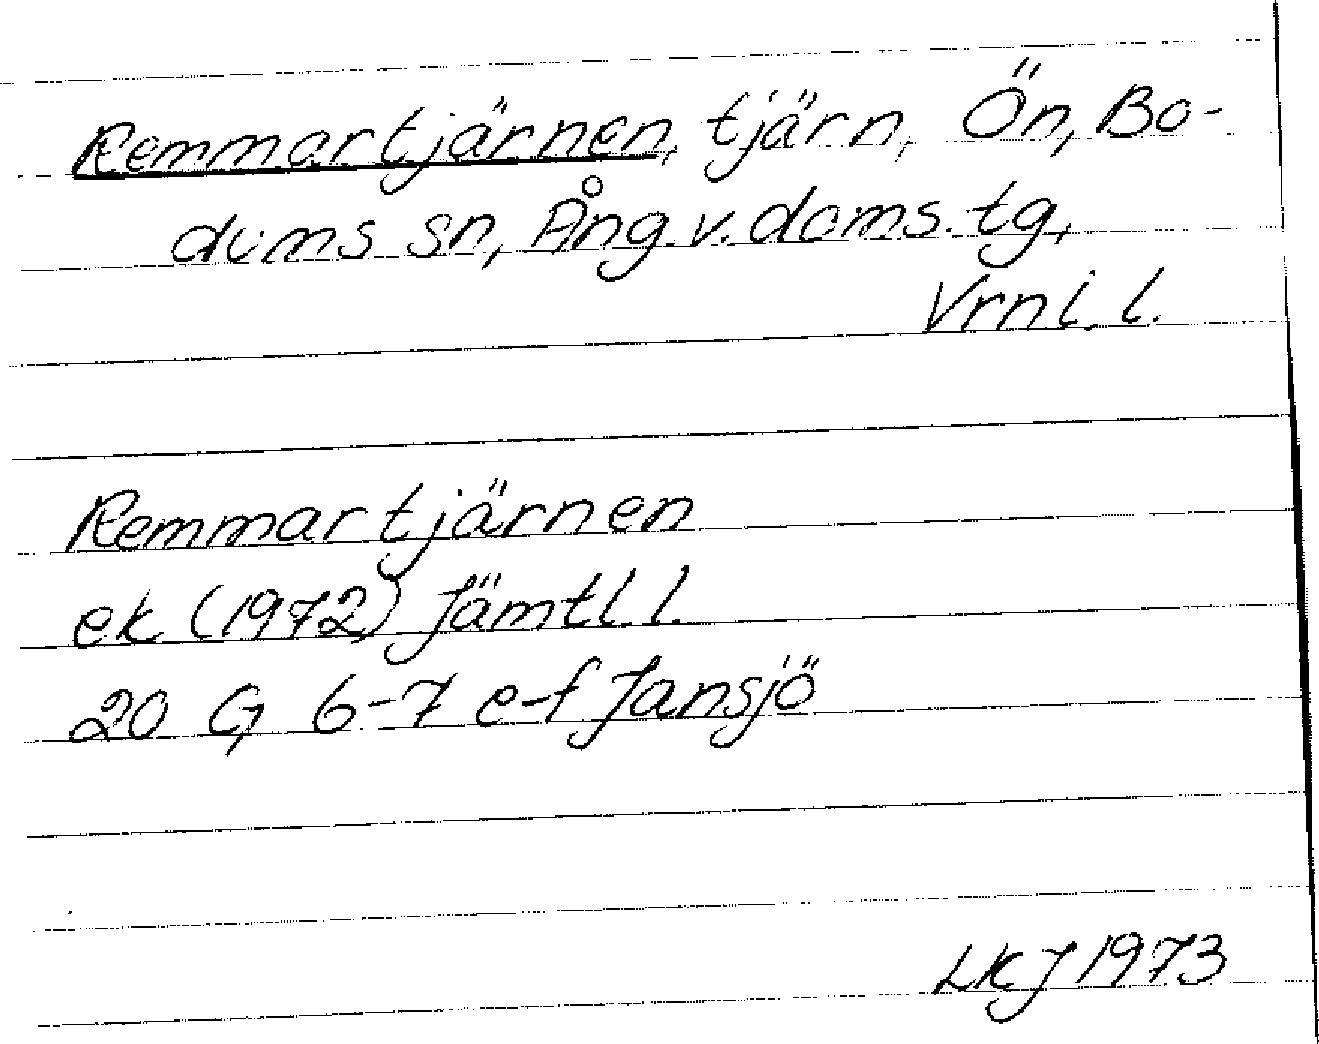 Remmartjärnen, tjärn, Ön, Bo-
dums sn, Ång. v. doms. tg,
Vrnl. l.
Remmartjärnen
ek (1972) Jämtl. l.
20 G 6-7 e-f Jansjö
LKJ 1973